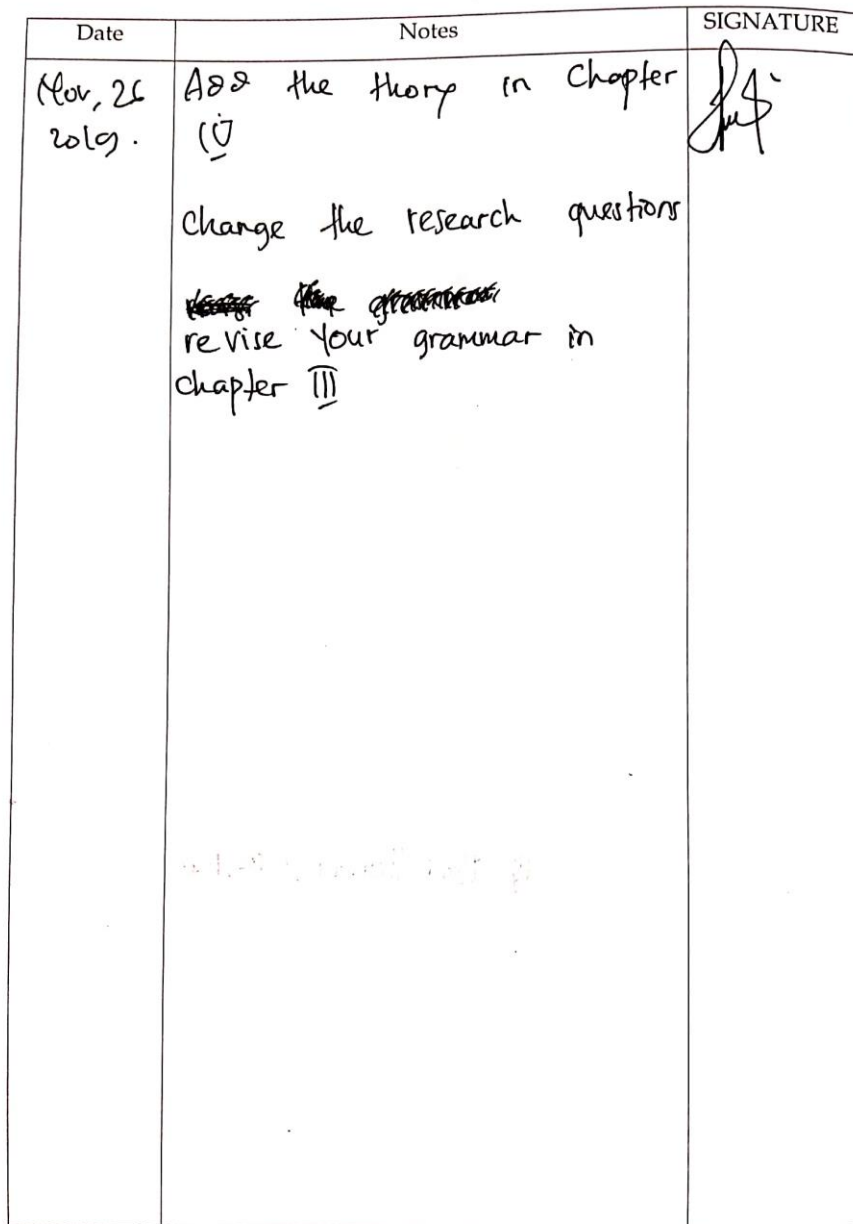 Date Notes SIGNATURE
Nov, 26 Add the thory in Chapter
2019.
Change the research questions
revise your grammar in
chapter III